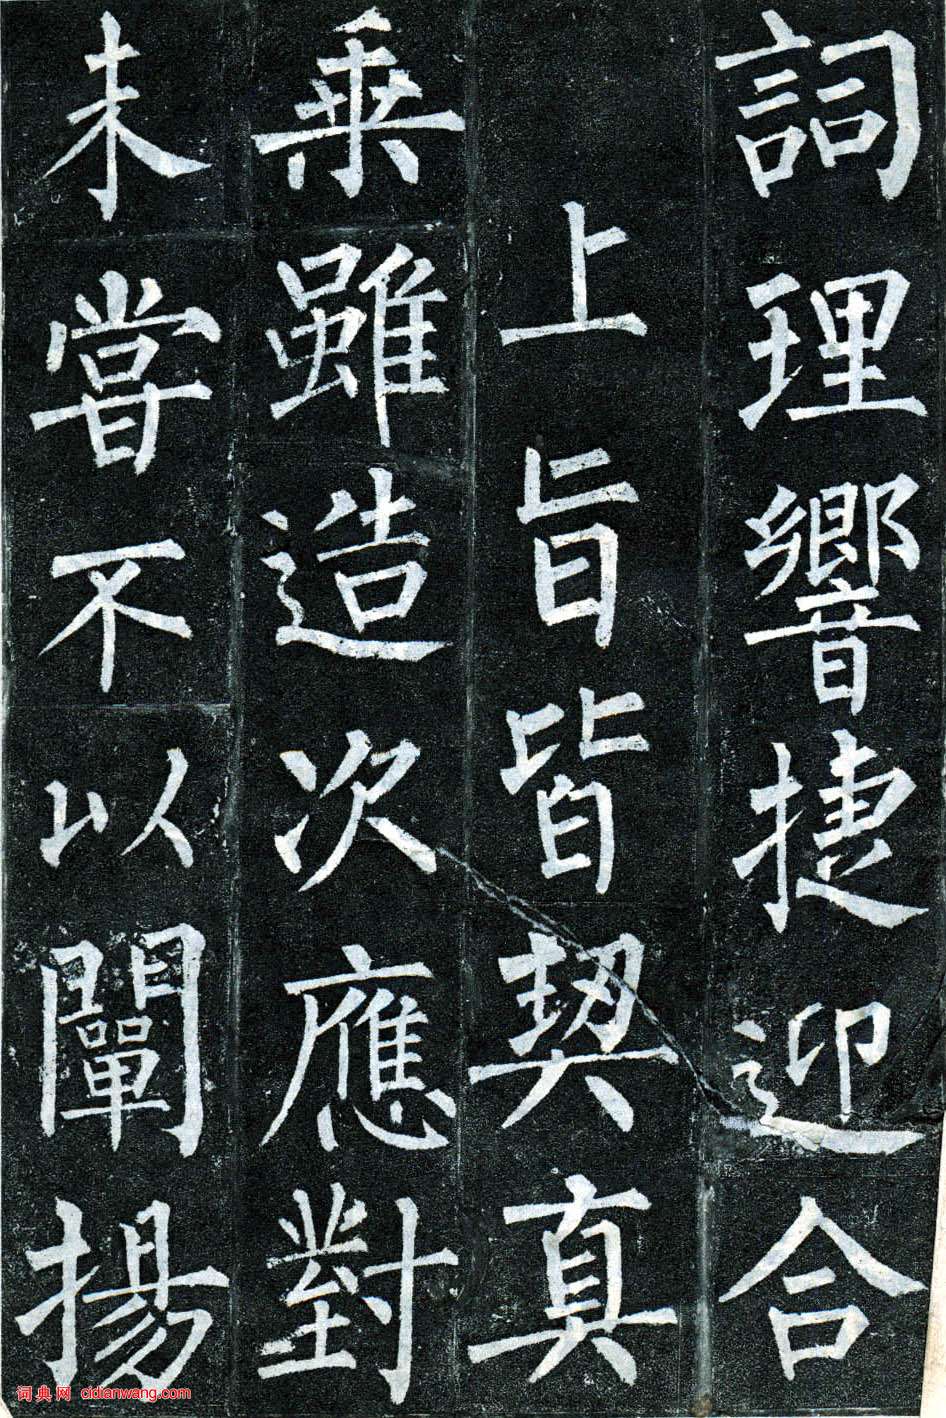 詞理響捷迎合
上旨皆契真
乗雖造次應對
未嘗不以闡揚
词典网 cidianwang.com